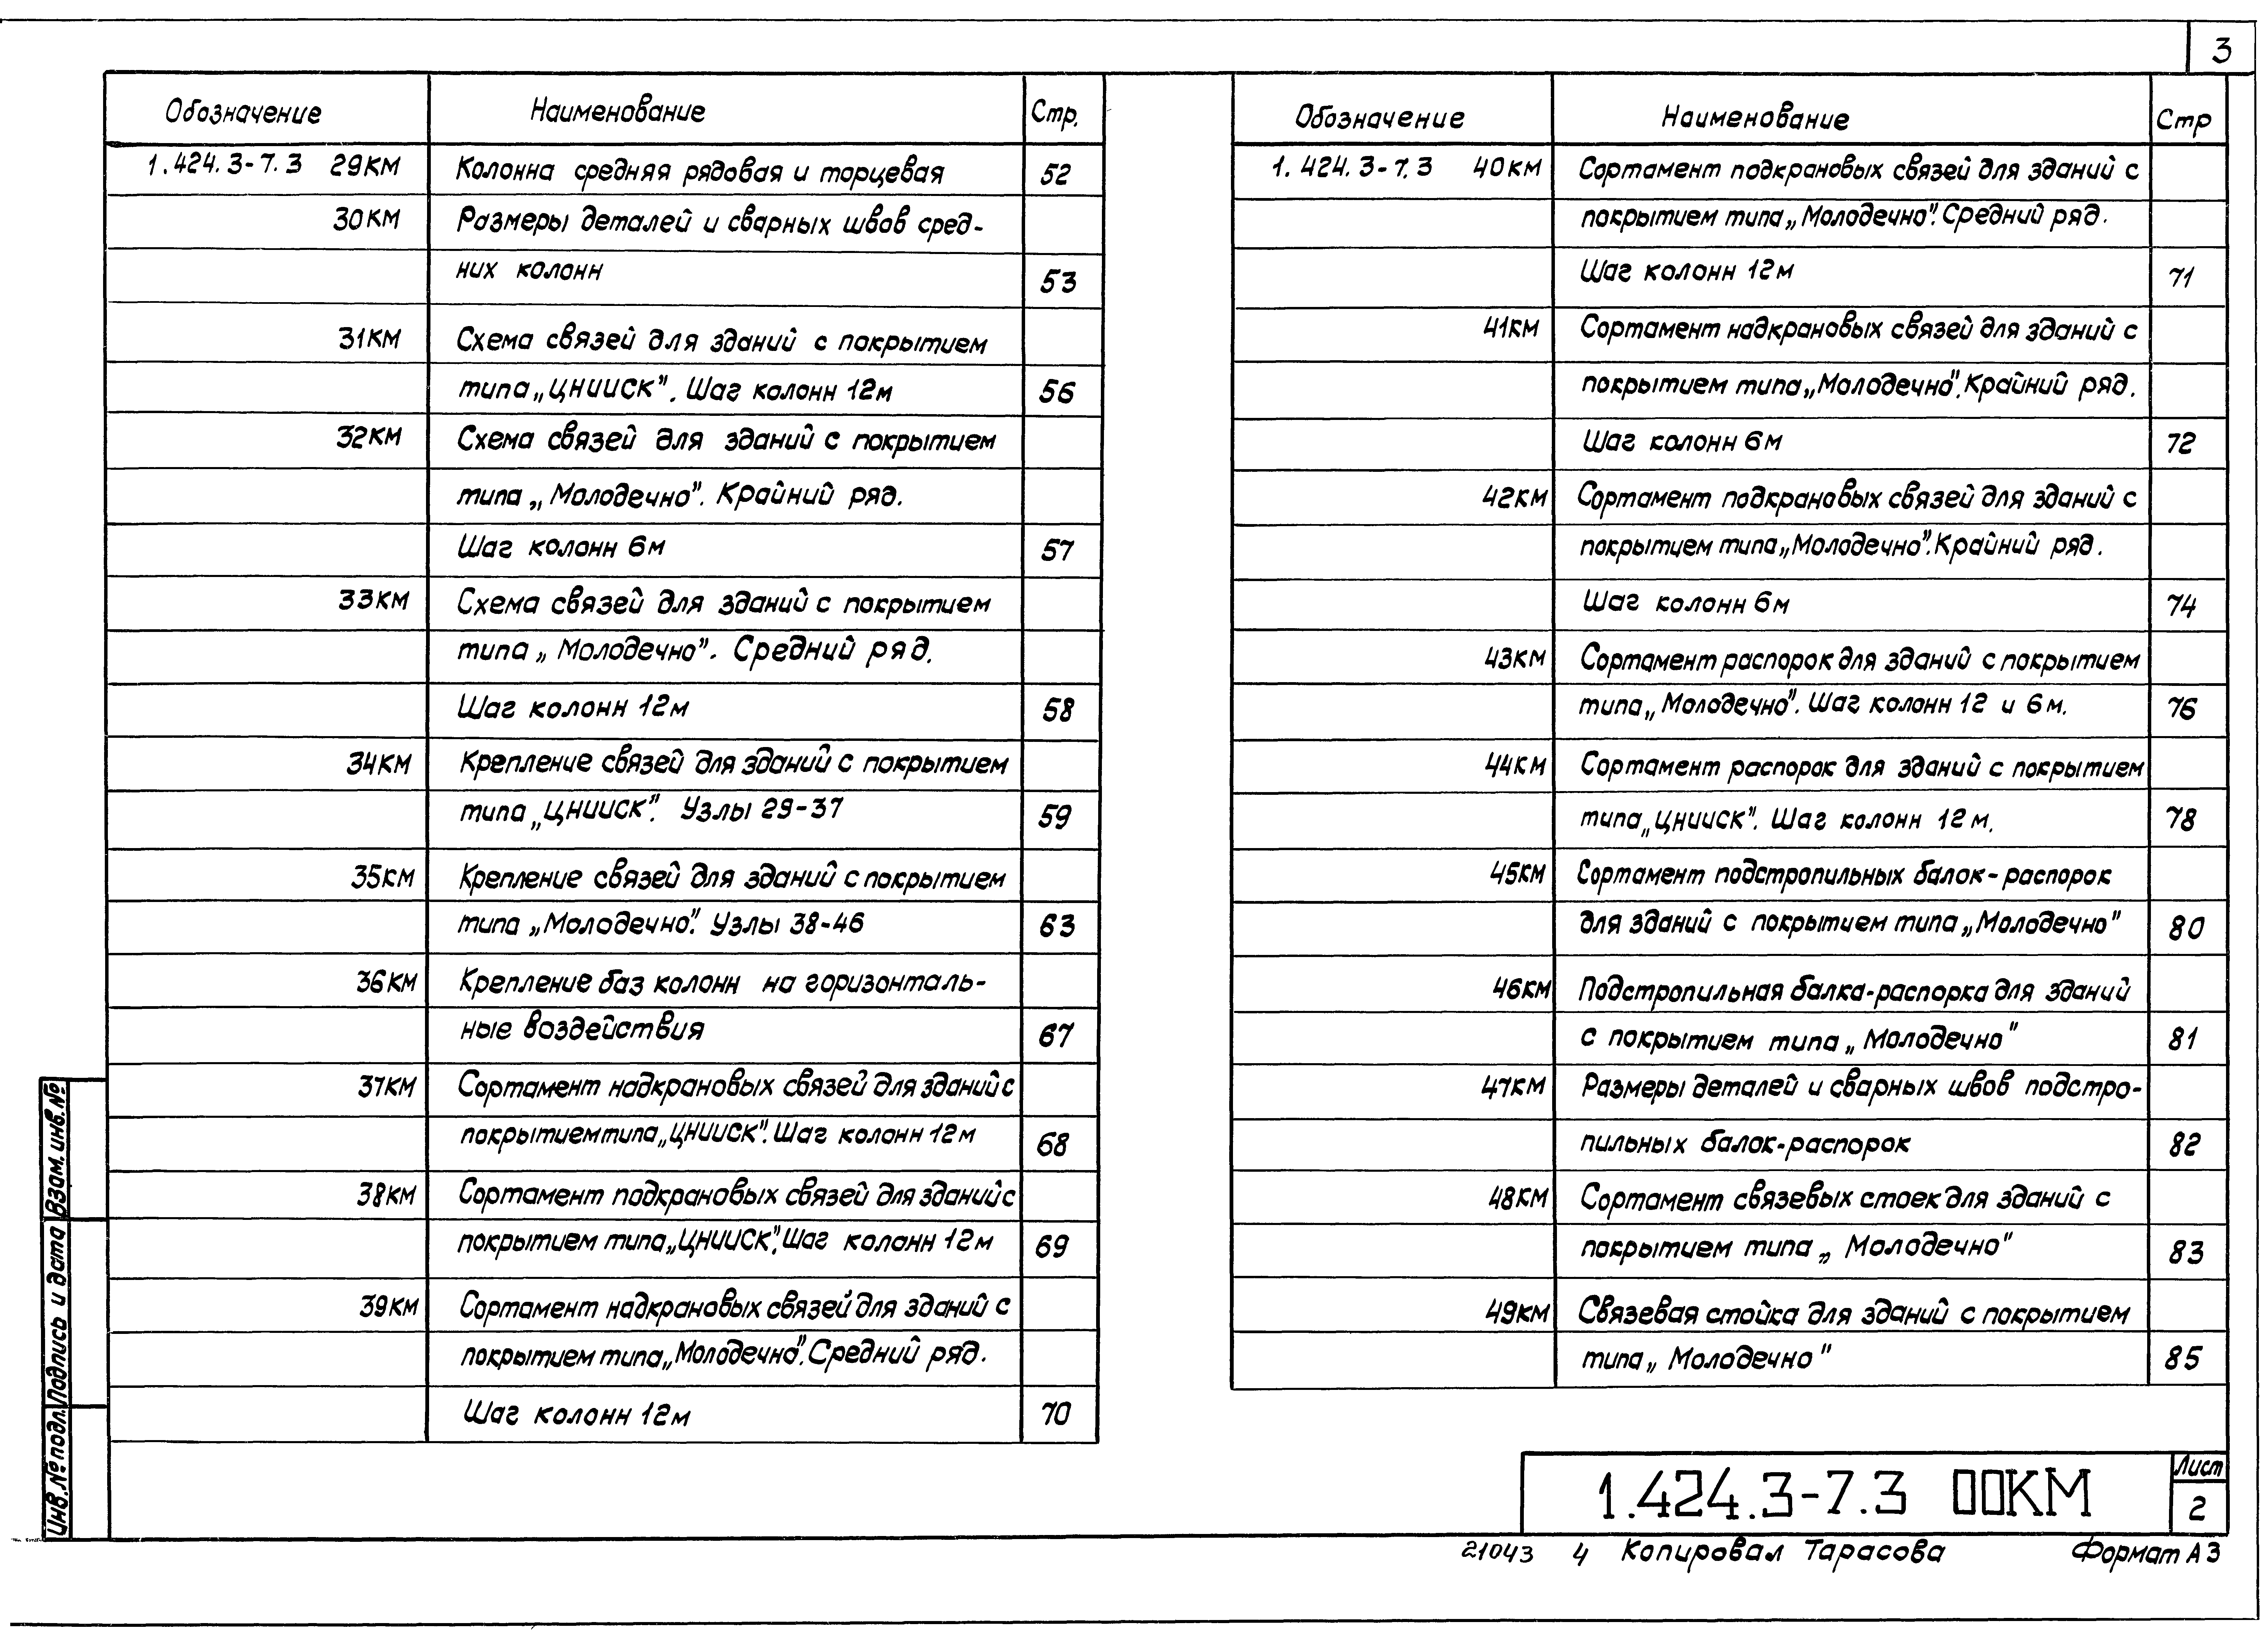 3
Обозначение Наименование Стр.
1.424.3-7.3 29КМ Колонна средняя рядовая и торцевая 52
30КМ Размеры деталей и сварных швов сред-
них колонн 53
31КМ Схема связей для зданий с покрытием
типа „ЦНИИСК". Шаг колонн 12м 56
32КМ Схема связей для зданий с покрытием
типа „Молодечно". Крайний ряд.
Шаг колонн 6м 57
33КМ Схема связей для зданий с покрытием
типа „Молодечно". Средний ряд.
Шаг колонн 12м 58
34КМ Крепление связей для зданий с покрытием
типа „ЦНИИСК". Узлы 29-37 59
35КМ Крепление связей для зданий с покрытием
типа „Молодечно". Узлы 38-46 63
36КМ Крепление баз колонн на горизонталь-
ные воздействия 67
37КМ Сортамент надкрановых связей для зданий с
покрытием типа „ЦНИИСК". Шаг колонн 12м 68
38КМ Сортамент подкрановых связей для зданий с
покрытием типа „ЦНИИСК". Шаг колонн 12м 69
39КМ Сортамент надкрановых связей для зданий с
покрытием типа „Молодечно". Средний ряд.
Шаг колонн 12м 70
Обозначение Наименование Стр
1.424.3-7.3 40КМ Сортамент подкрановых связей для зданий с
покрытием типа „Молодечно". Средний ряд.
Шаг колонн 12м 71
41КМ Сортамент надкрановых связей для зданий с
покрытием типа „Молодечно". Крайний ряд.
Шаг колонн 6м 72
42КМ Сортамент подкрановых связей для зданий с
покрытием типа „Молодечно". Крайний ряд.
Шаг колонн 6м 74
43КМ Сортамент распорок для зданий с покрытием
типа „Молодечно". Шаг колонн 12 и 6м. 76
44КМ Сортамент распорок для зданий с покрытием
типа „ЦНИИСК". Шаг колонн 12м. 78
45КМ Сортамент подстропильных балок-распорок
для зданий с покрытием типа „Молодечно" 80
46КМ Подстропильная балка-распорка для зданий
с покрытием типа „Молодечно" 81
47КМ Размеры деталей и сварных швов подстро-
пильных балок-распорок 82
48КМ Сортамент связевых стоек для зданий с
покрытием типа „Молодечно" 83
49КМ Связевая стойка для зданий с покрытием
типа „Молодечно" 85
Инв. № подл. Подпись и дата Взам. инв. №
1.424.3-7.3 00КМ
Лист
2
21043 4 Копировал Тарасова Формат А3